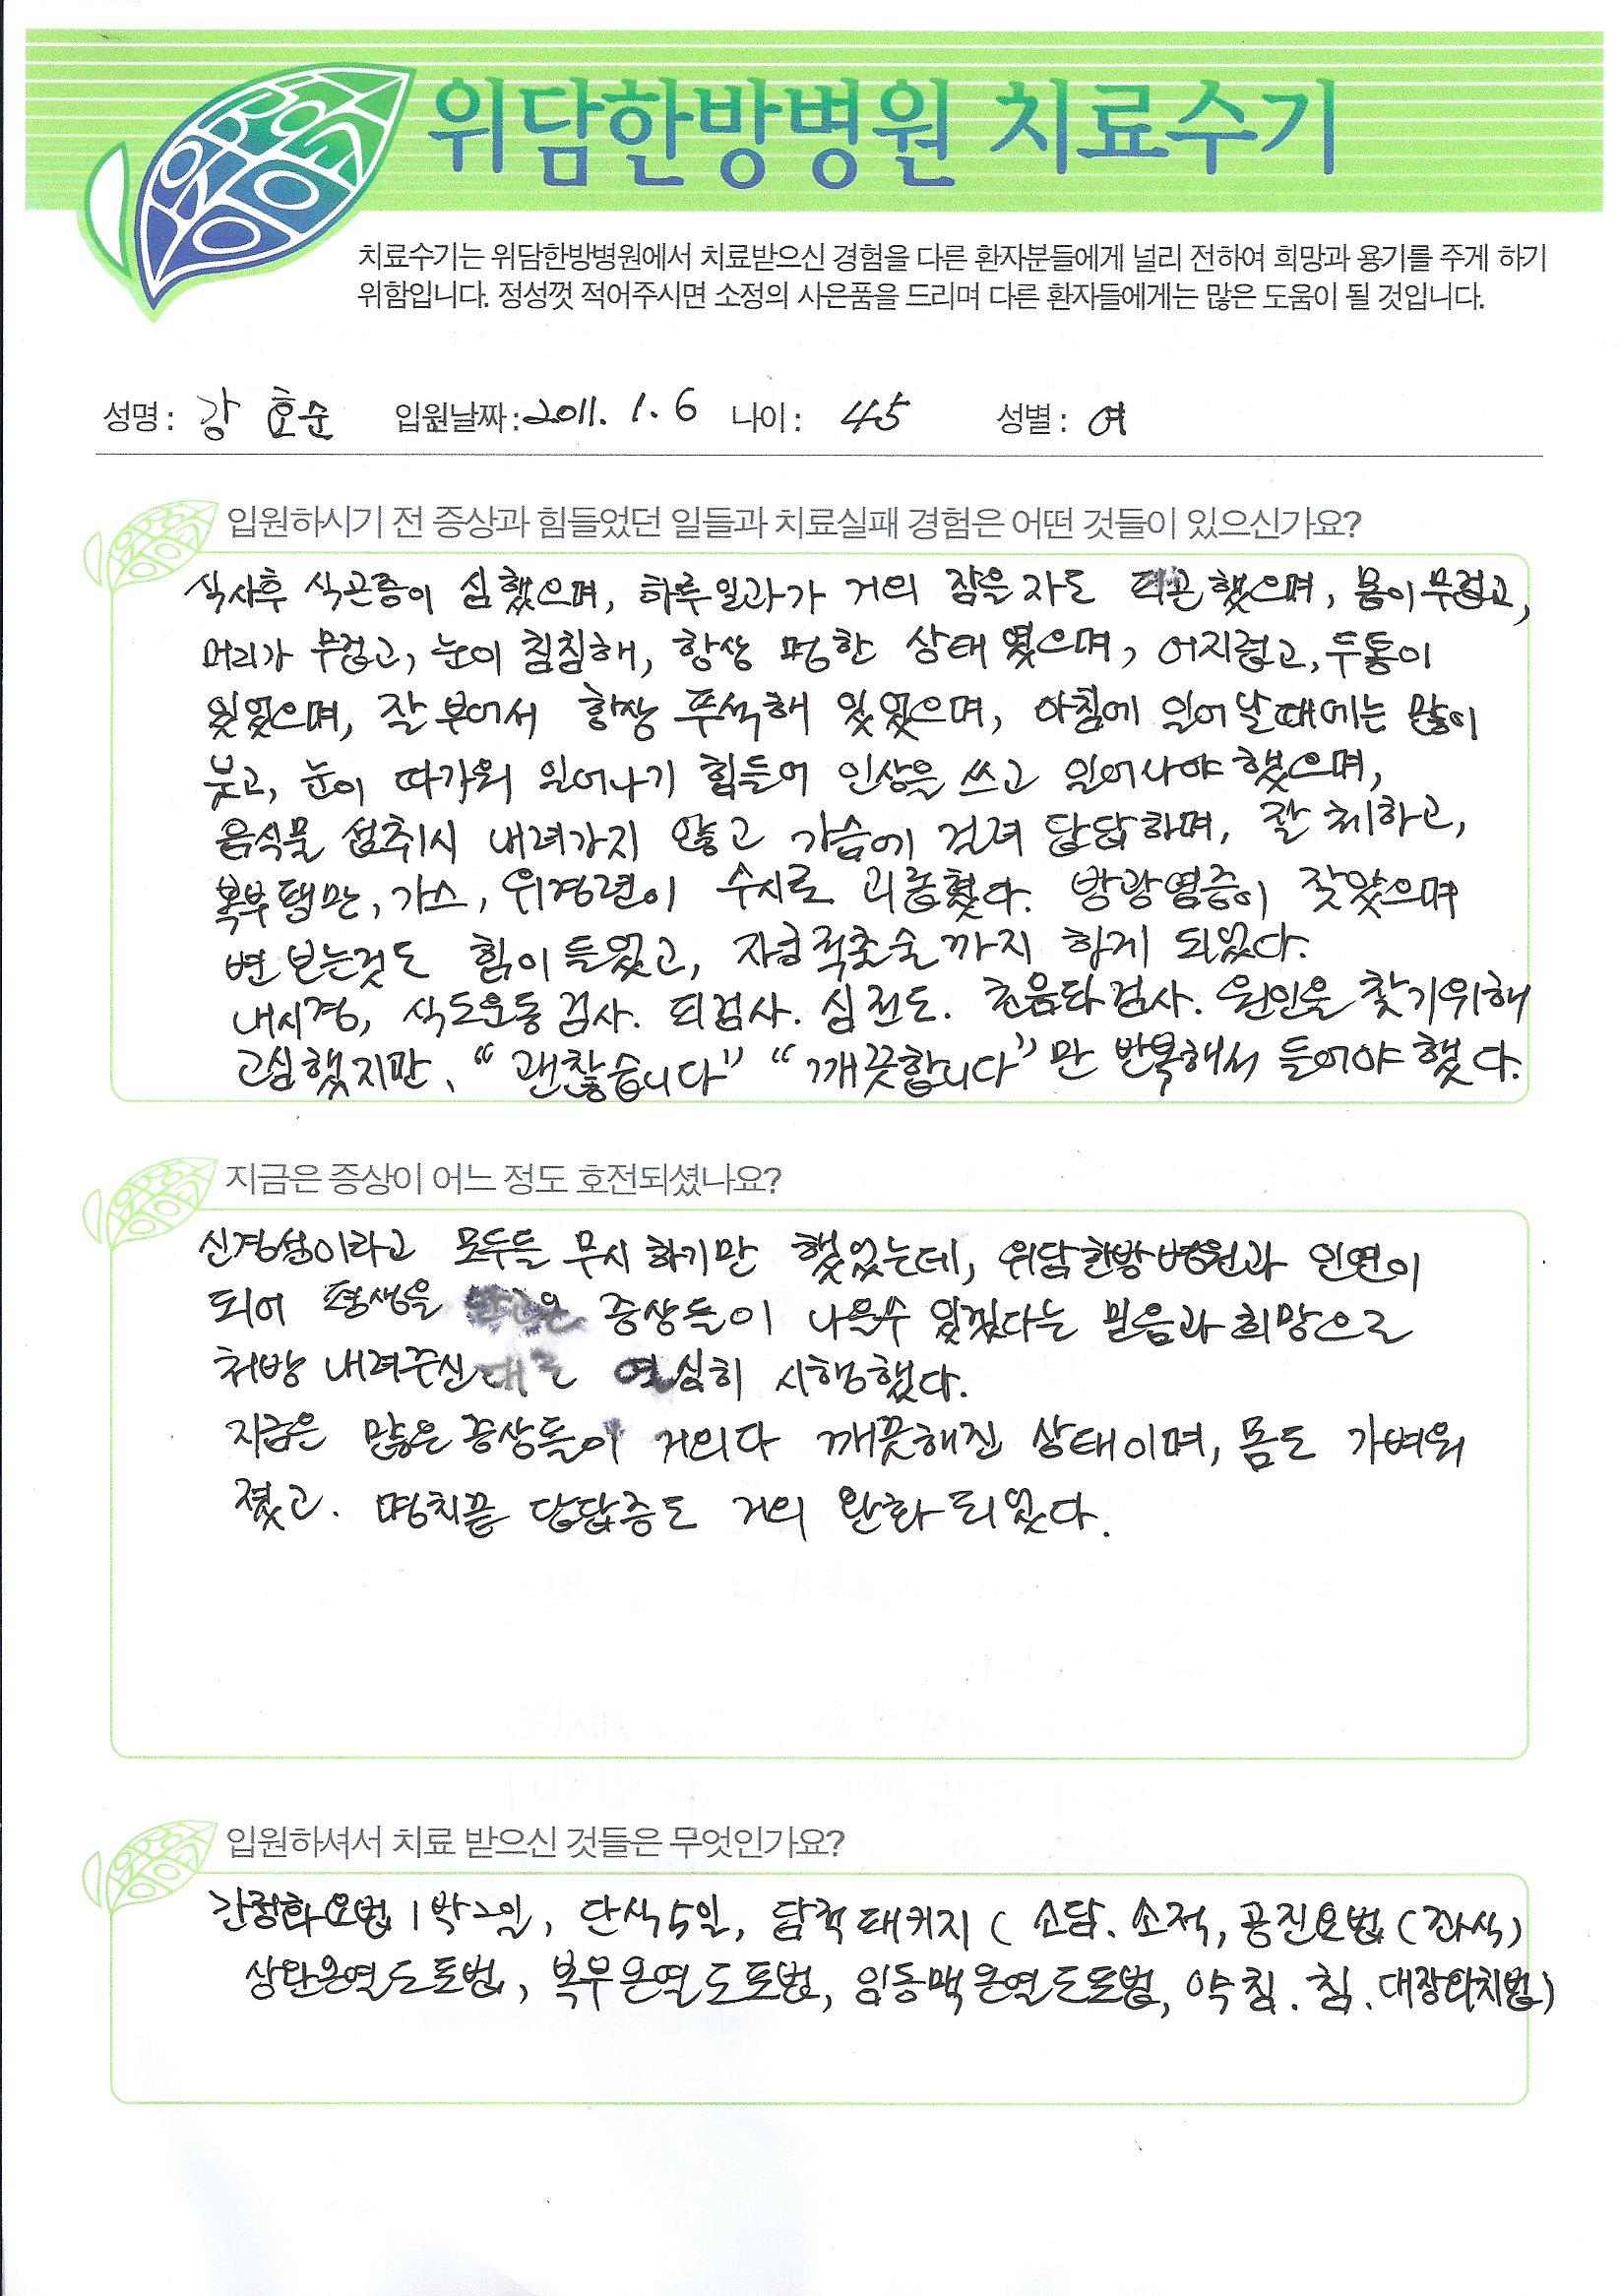 위담한방병원 치료수기
치료수기는 위담한방병원에서 치료받으신 경험을 다른 환자분들에게 널리 전하여 희망과 용기를 주게 하기
위함입니다. 정성껏 적어주시면 소정의 사은품을 드리며 다른 환자들에게는 많은 도움이 될 것입니다.
성명 : 강 호순 입원날짜 : 2011. 1. 6 나이 : 45 성별 : 여
입원하시기 전 증상과 힘들었던 일들과 치료실패 경험은 어떤 것들이 있으신가요?
식사후 식곤증이 심했으며, 하루일과가 거의 잠을 자도 피곤했으며, 몸이 무겁고,
머리가 무겁고, 눈이 침침해, 항상 멍한 상태였으며, 어지럽고, 두통이
있었으며, 잘 부어서 항상 푸석해 있었으며, 아침에 일어날때에는 많이
붓고, 눈이 따가워 일어나기 힘들어 인상을 쓰고 일어나야 했으며,
음식물 섭취시 내려가지 않고 가슴에 걸려 답답하며, 잘 체하고,
복부팽만, 가스, 위경련이 수시로 괴롭혔다. 방광염증이 잦았으며
변 보는것도 힘이 들었고, 자궁적출술까지 하게 되었다.
내시경, 식도운동검사. 피검사. 심전도. 초음파검사. 원인을 찾기위해
고심했지만, “괜찮습니다” “깨끗합니다” 만 반복해서 들어야 했다.
지금은 증상이 어느 정도 호전되셨나요?
신경성이라고 모두들 무시하기만 했었는데, 위담한방병원과 인연이
되어 평생을 증상들이 나을수 있겠다는 믿음과 희망으로
처방 내려주신대로 열심히 시행했다.
지금은 많은 증상들이 거의다 깨끗해진 상태이며, 몸도 가벼워
졌고. 명치끝 답답증도 거의 완화되었다.
입원하셔서 치료 받으신 것들은 무엇인가요?
간정화요법 1박2일, 단식5일, 담적패키지 ( 소담. 소적, 공진요법 (좌식)
상완온열도포법, 복부온열도포법, 임동맥온열도포법, 약침. 침.